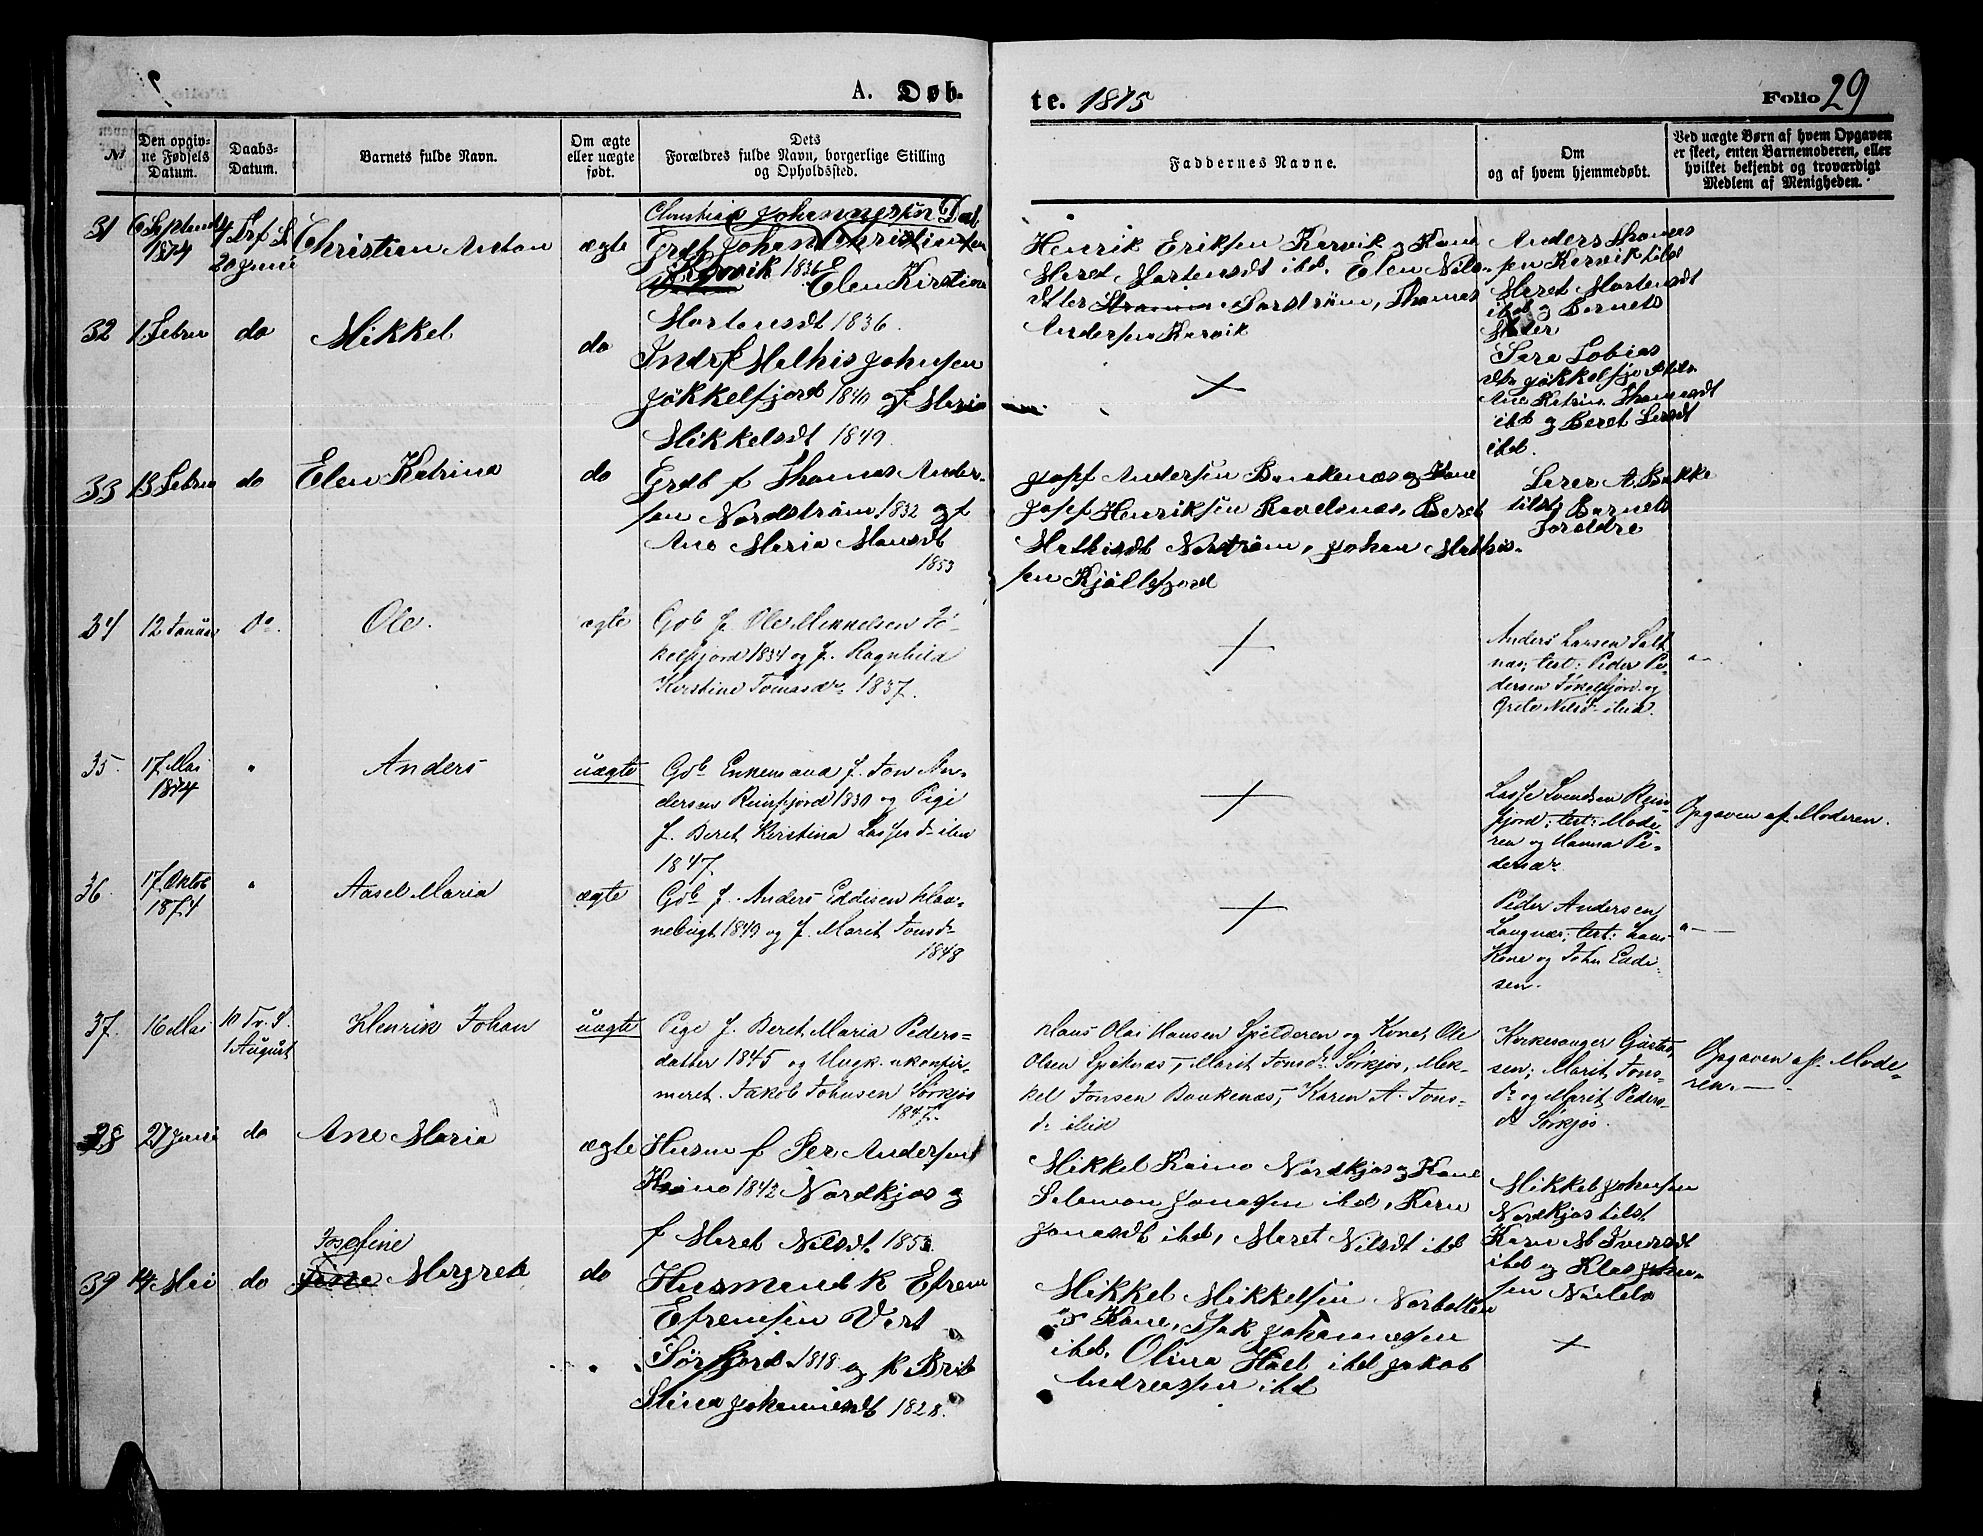 A. Døb-
te. 1875
Folio 29
No
Den opgiv-
ne Fødsels
Datum.
Daabs-
Datum.
Barnets fulde Navn.
Om ægte
eller uægte
født.
Dets
Forældres fulde Navn, borgerlige Stilling
og Opholdssted.
Faddernes Navne.
Om
og af hvem hjemmedøbt.
Ved uægte Børn af hvem Opgaven
er skeet, enten Barnemoderen, eller
hvilket bekjendt og troværdigt
Medlem af Menigheden.
31
6 Septemb
1874
4 S e f S
20 Juni
Christian Anton
ægte
Christian Johannessen
Grdb Johan Christiansen
Kervik 1836 Elen Kirstina
Mortensdt 1836.
Henrik Eriksen Kervik og Kone
Meret Mortensdt ibd. Elen Nils-
dtter Sorstrøm, Thomas
Andersen Kervik
Anders Thomas
sen Kervik tilst
Meret Mortensdt
ibd og Barnets
Moder
32
1 Febru
do
Mikkel
do
Inderst f Mathis Johnsen
Jøkkelfjord 1840 og f Maria
Mikkelsdt 1849.
+
Sara Tobias
dtr Jøkkelfjo tilst
Ane Katrine Thomasdt
ibd og Beret Larsdt
ibd.
33
13 Febru
do
Elen Katrina
do
Grdb f Thomas Ander-
sen Nordstrøm 1832 og f
Ane Maria Monsdt
1853
Josef Andersen Baukenæs og Kone
Josef Henriksen Ravelsnæs, Beret
Mathisdt Norstrøm, Johan Mathis-
sen Kjøllefjord
Lærer A. Bakke
tilst Barnets
Foreldre
34
12 Januar
Do.
Ole.
ægte
Gdb f. Ole Mikkelsen Jø-
kelfjord 1834 og f. Ragnhild
Kirstine Tomasdr 1837.
+
Anders Larsen Salt
næs; test: Peder Pe-
dersen Jøkelfjor og
Grete Nilsd ibid.
35.
17. Mai
1874
"
Anders
uægte
Gdb Enkemand f. Jon An-
dersen Reinfjord 1830 og Pige
f. Beret Kirstina Lassesd ibid
1847.
+
Lasse Svendsen Rein-
fjord; test: Mode-
ren og Hanna Pe-
dersdr.
Opgaven af Moderen.
36.
17. Oktob
1874
"
Aasel Maria
ægte
Gdb f. Anders Eddisen Hav-
nebugt 1849 og f. Marit Jonsd
1848
+
Peder Andersen
Langnæs; test: hans
Kone og John Eddi-
sen.
"—
37.
16 Mai
10 Tr. S.
1 August
Henrik Johan
uægte
Pige f. Beret Maria Peders-
datter 1845 og Ungk. ukonfir-
meret. Jakob Johnsen Sørkjos
1847.
Hans Olai Hansen Spilderen og Kone, Ole
Olsen Spiknæs, Marit Jonsd Sørkjos, Mik-
kel Jonsen Baukenæs, Karen A. Jons-
d. ibid
Kirkesanger Gustav-
sen; Marit Jons-
dr og Marit Peders-
dt Sørkjos.
Opgaven af Mode-
ren.—
38
27 Juni
do
Ane Maria
ægte
Husm f Per Andersen
Kaino 1842 Nordkjos og
f Meret Nilsdt 1853
Mikkel Kaino Nordkjos og Kone
Salemon Jonassen ibd, Karen
Jonasdt ibd, Meret Nilsdt ibd
Mikkel Johnsen
Nordkjos tilst
Karen M Iversdt
ibd og Klas Johan-
sen
39
14. Mai
do
Josefine
Margrete
do
Husmand K Efrem
Efremsen Vert
Sørfjord 1818 og K Brit
Stina Johannesdt 1828.
Mikkel Mikkelsen Norbotten
og Kone, Isak Johannesen
ibd. Olina ibd Jakob
Andreassen ibd
+